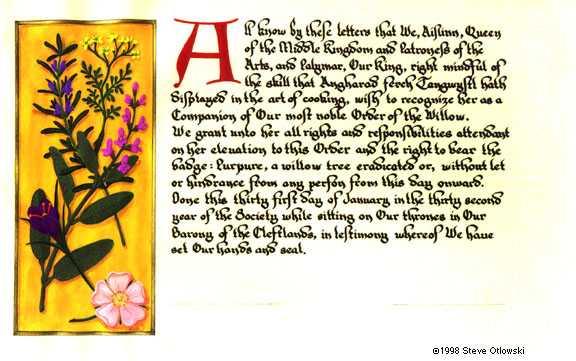 All know by these letters that We, Aislinn, Queen
of the Middle Kingdom and Patroness of the
Arts, and Palymar, Our King, right mindful of
the skill that Angharad ferch Tangwystl hath
displayed in the art of cooking, wish to recognize her as a
Companion of Our most noble Order of the Willow.
We grant unto her all rights and responsibilities attendant
on her elevation to this Order and the right to bear the
badge: Purpure, a willow tree eradicated or, without let
or hindrance from any person from this day onward.
Done this thirty first day of January in the thirty second
year of the Society while sitting on Our thrones in Our
Barony of the Cleftlands, in testimony whereof We have
set Our hands and seal.
©1998 Steve Otlowski